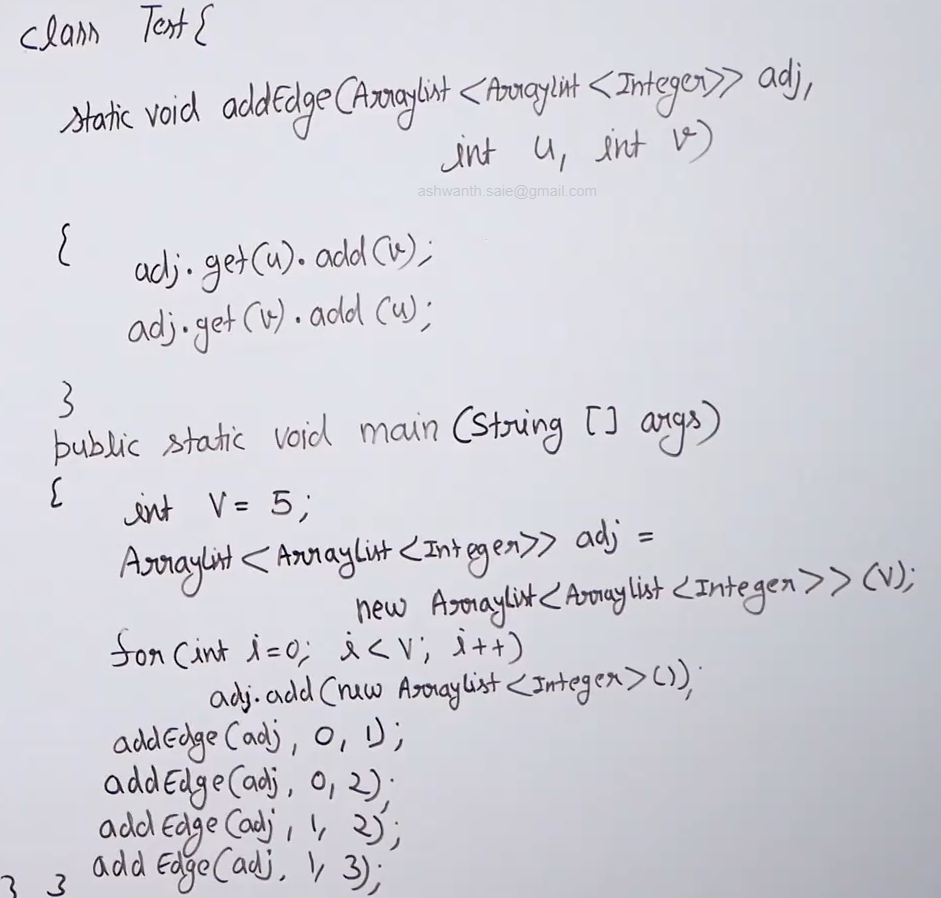 class Test{
static void addEdge(ArrayList<ArrayList<Integer>> adj,
int u, int v)
ashwanth.saie@gmail.com
{ adj.get(u).add(v);
adj.get(v).add(u);
}
public static void main(String [] args)
{ int V= 5;
ArrayList<ArrayList<Integer>> adj =
new ArrayList<ArrayList<Integer>>(V);
for(int i=0; i<V; i++)
adj.add(new ArrayList<Integer>());
addEdge(adj, 0, 1);
addEdge(adj, 0, 2);
addEdge(adj, 1, 2);
addEdge(adj, 1, 3);
} }